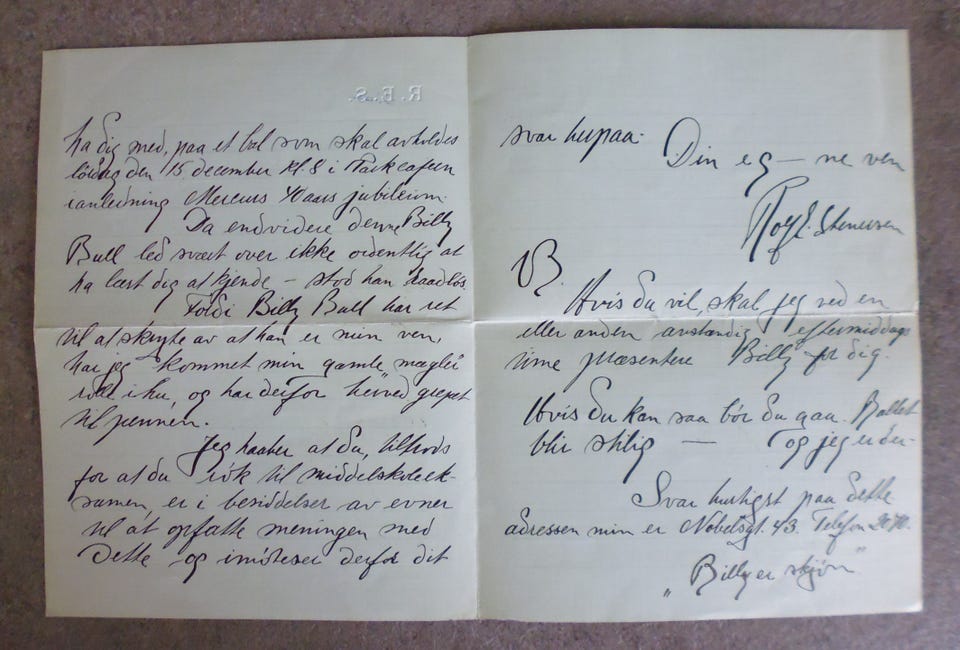 R. E. S.
ha dig med, paa et bal som skal avholdes
lördag den 15 december kl. 8 i Parkcafeen
i anledning Mercurs 40 aars jubileum.
Da endvidere denne Billy
Bull led svært over ikke ordentlig at
ha lært dig at kjende – stod han raadlös.
Fordi Billy Bull har ret
til at skryte av at han er min ven,
har jeg kommet min gamle "mægler"
rolle ihu, og har derfor herved grepet
til pennen.
Jeg haaber at du, tiltrods
for at du røk til middelskoleek-
samen, er i besiddelser av evner
til at opfatte meningen med
dette og imøteser derfor dit
svar herpaa.
Din eg – ne ven
Rolf E. Stenersen
NB.
Hvis du vil, skal jeg ved en
eller anden anstændig eftermiddags
time præsentere Billy for dig.
Hvis du kan saa bör du gaa. Ballet
blir stilig — og jeg er der.
Svar hurtigst paa dette
adressen min er Nobelsgt. 43. Telefon
"Billy er skjön"